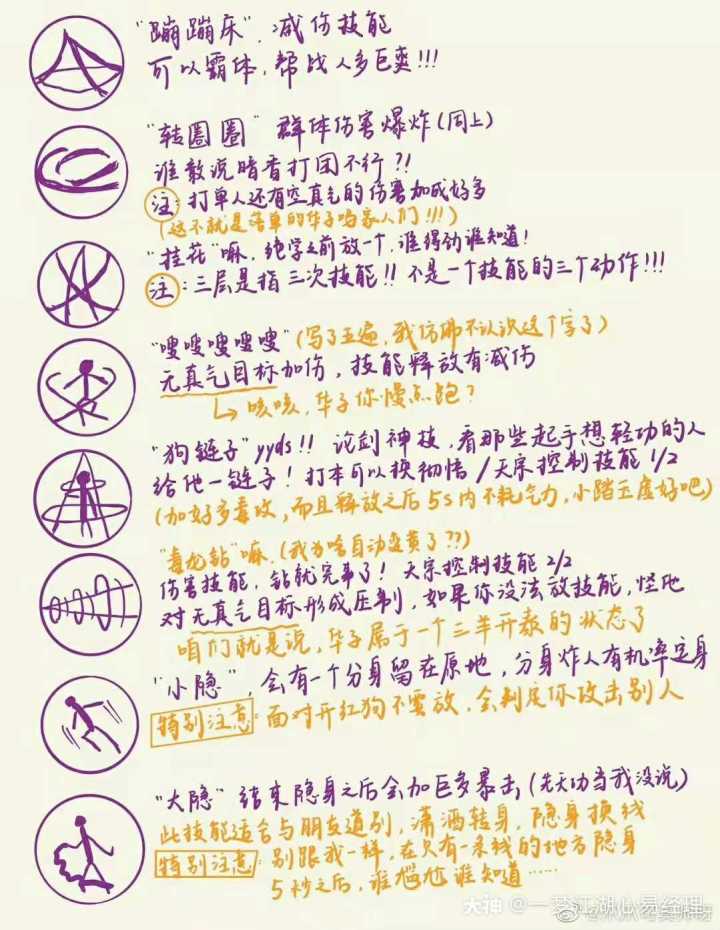 “蹦蹦床”.减伤技能
可以霸体，帮战人多巨爽!!!
“转圈圈” 群体伤害爆炸(同上)
谁敢说暗香打团不行?!
注: 打单人还有空真气的伤害加成好多
(这不就是落单的华子吗家人们!!!)
“挂花”嘛，绝学之前放一个，谁得劲谁知道!
注: 三层是指三次技能!! 不是一个技能的三个动作!!!
“嗖嗖嗖嗖嗖”(写了五遍，我仿佛不认识这个字了)
无真气目标加伤，技能释放有减伤
↳ 咳咳，华子你慢点跑?
“狗链子”yyds!! 论剑神技，看那些起手想轻功的人
给他一链子! 打本可以换彻悟/天宗控制技能 1/2
(加好多毒攻，而且释放之后5s内不耗气力，小踏玉虚好吧)
“毒龙钻”嘛，(我为啥自动变黄了??)
伤害技能，钻就完事了! 天宗控制技能 2/2
对无真气目标形成压制，如果你没法放技能，怪他
咱们就是说，华子属于一个三羊开泰的状态了
“小隐”，会有一个分身留在原地，分身炸人有机率定身
特别注意: 面对开红狗不要放，会判定你攻击别人
“大隐” 结束隐身之后会加巨多暴击，(先天功当我没说)
此技能适合与朋友道别，潇洒转身，隐身换线
特别注意: 别跟我一样，在只有一条线的地方隐身
5秒之后，谁尴尬谁知道……
大神 @一梦江湖